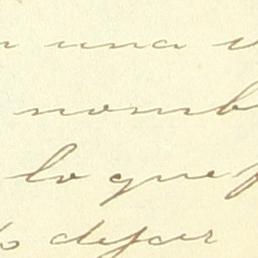 una
nomb
lo que
dejar